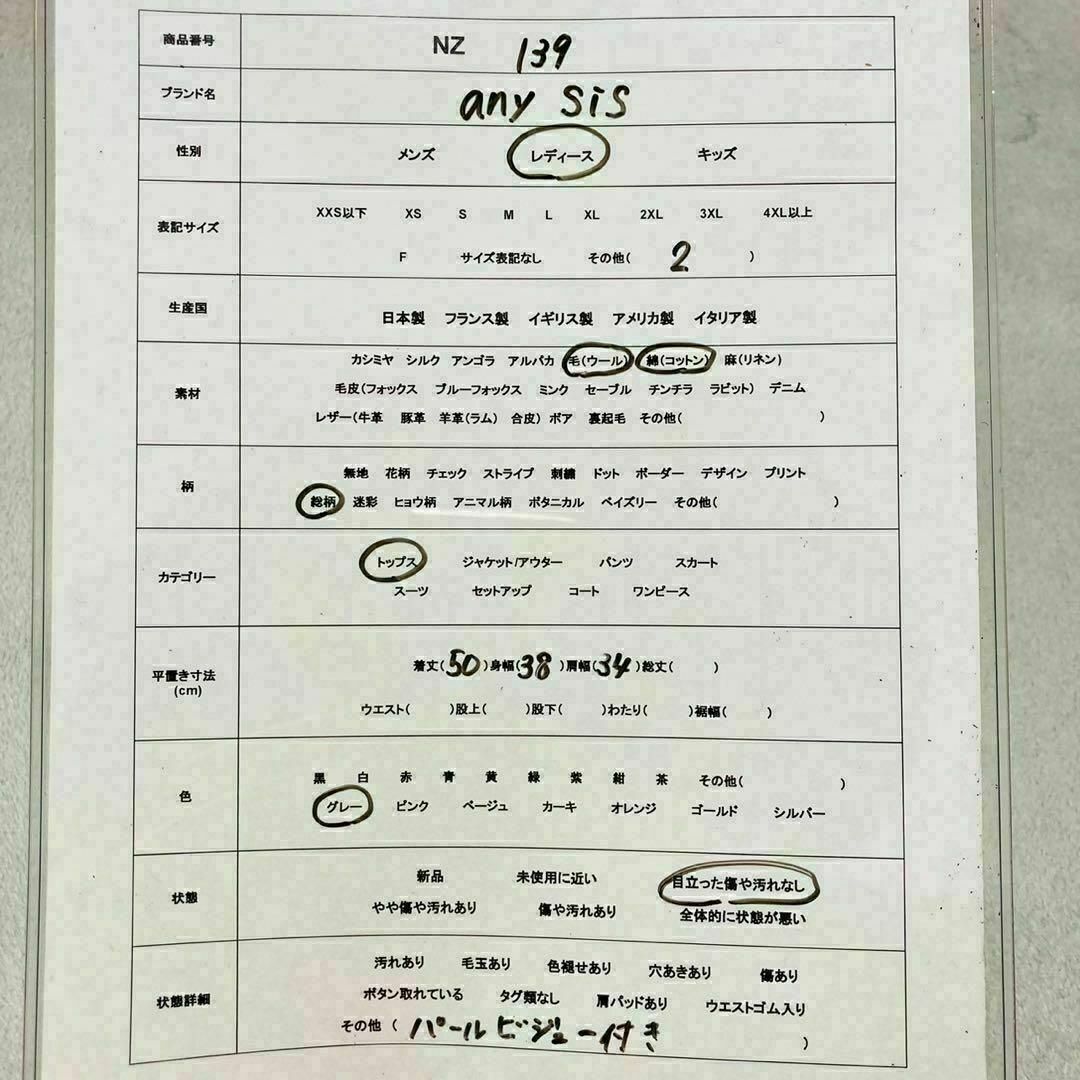 商品番号 NZ 139
ブランド名 any SiS
性別 メンズ レディース キッズ
表記サイズ
XXS以下 XS S M L XL 2XL 3XL 4XL以上
F サイズ表記なし その他( 2 )
生産国 日本製 フランス製 イギリス製 アメリカ製 イタリア製
素材
カシミヤ シルク アンゴラ アルパカ 毛(ウール) 綿(コットン) 麻(リネン)
毛皮(フォックス ブルーフォックス ミンク セーブル チンチラ ラビット) デニム
レザー(牛革 豚革 羊革(ラム) 合皮) ボア 裏起毛 その他( )
柄
無地 花柄 チェック ストライプ 刺繍 ドット ボーダー デザイン プリント
総柄 迷彩 ヒョウ柄 アニマル柄 ボタニカル ペイズリー その他( )
カテゴリー
トップス ジャケット/アウター パンツ スカート
スーツ セットアップ コート ワンピース
平置き寸法
(cm)
着丈(50)身幅(38)肩幅(34)総丈( )
ウエスト( )股上( )股下( )わたり( )裾幅( )
色
黒 白 赤 青 黄 緑 紫 紺 茶 その他( )
グレー ピンク ベージュ カーキ オレンジ ゴールド シルバー
状態
新品 未使用に近い 目立った傷や汚れなし
やや傷や汚れあり 傷や汚れあり 全体的に状態が悪い
状態詳細
汚れあり 毛玉あり 色褪せあり 穴あきあり 傷あり
ボタン取れている タグ類なし 肩パッドあり ウエストゴム入り
その他 ( パールビジュー付き )